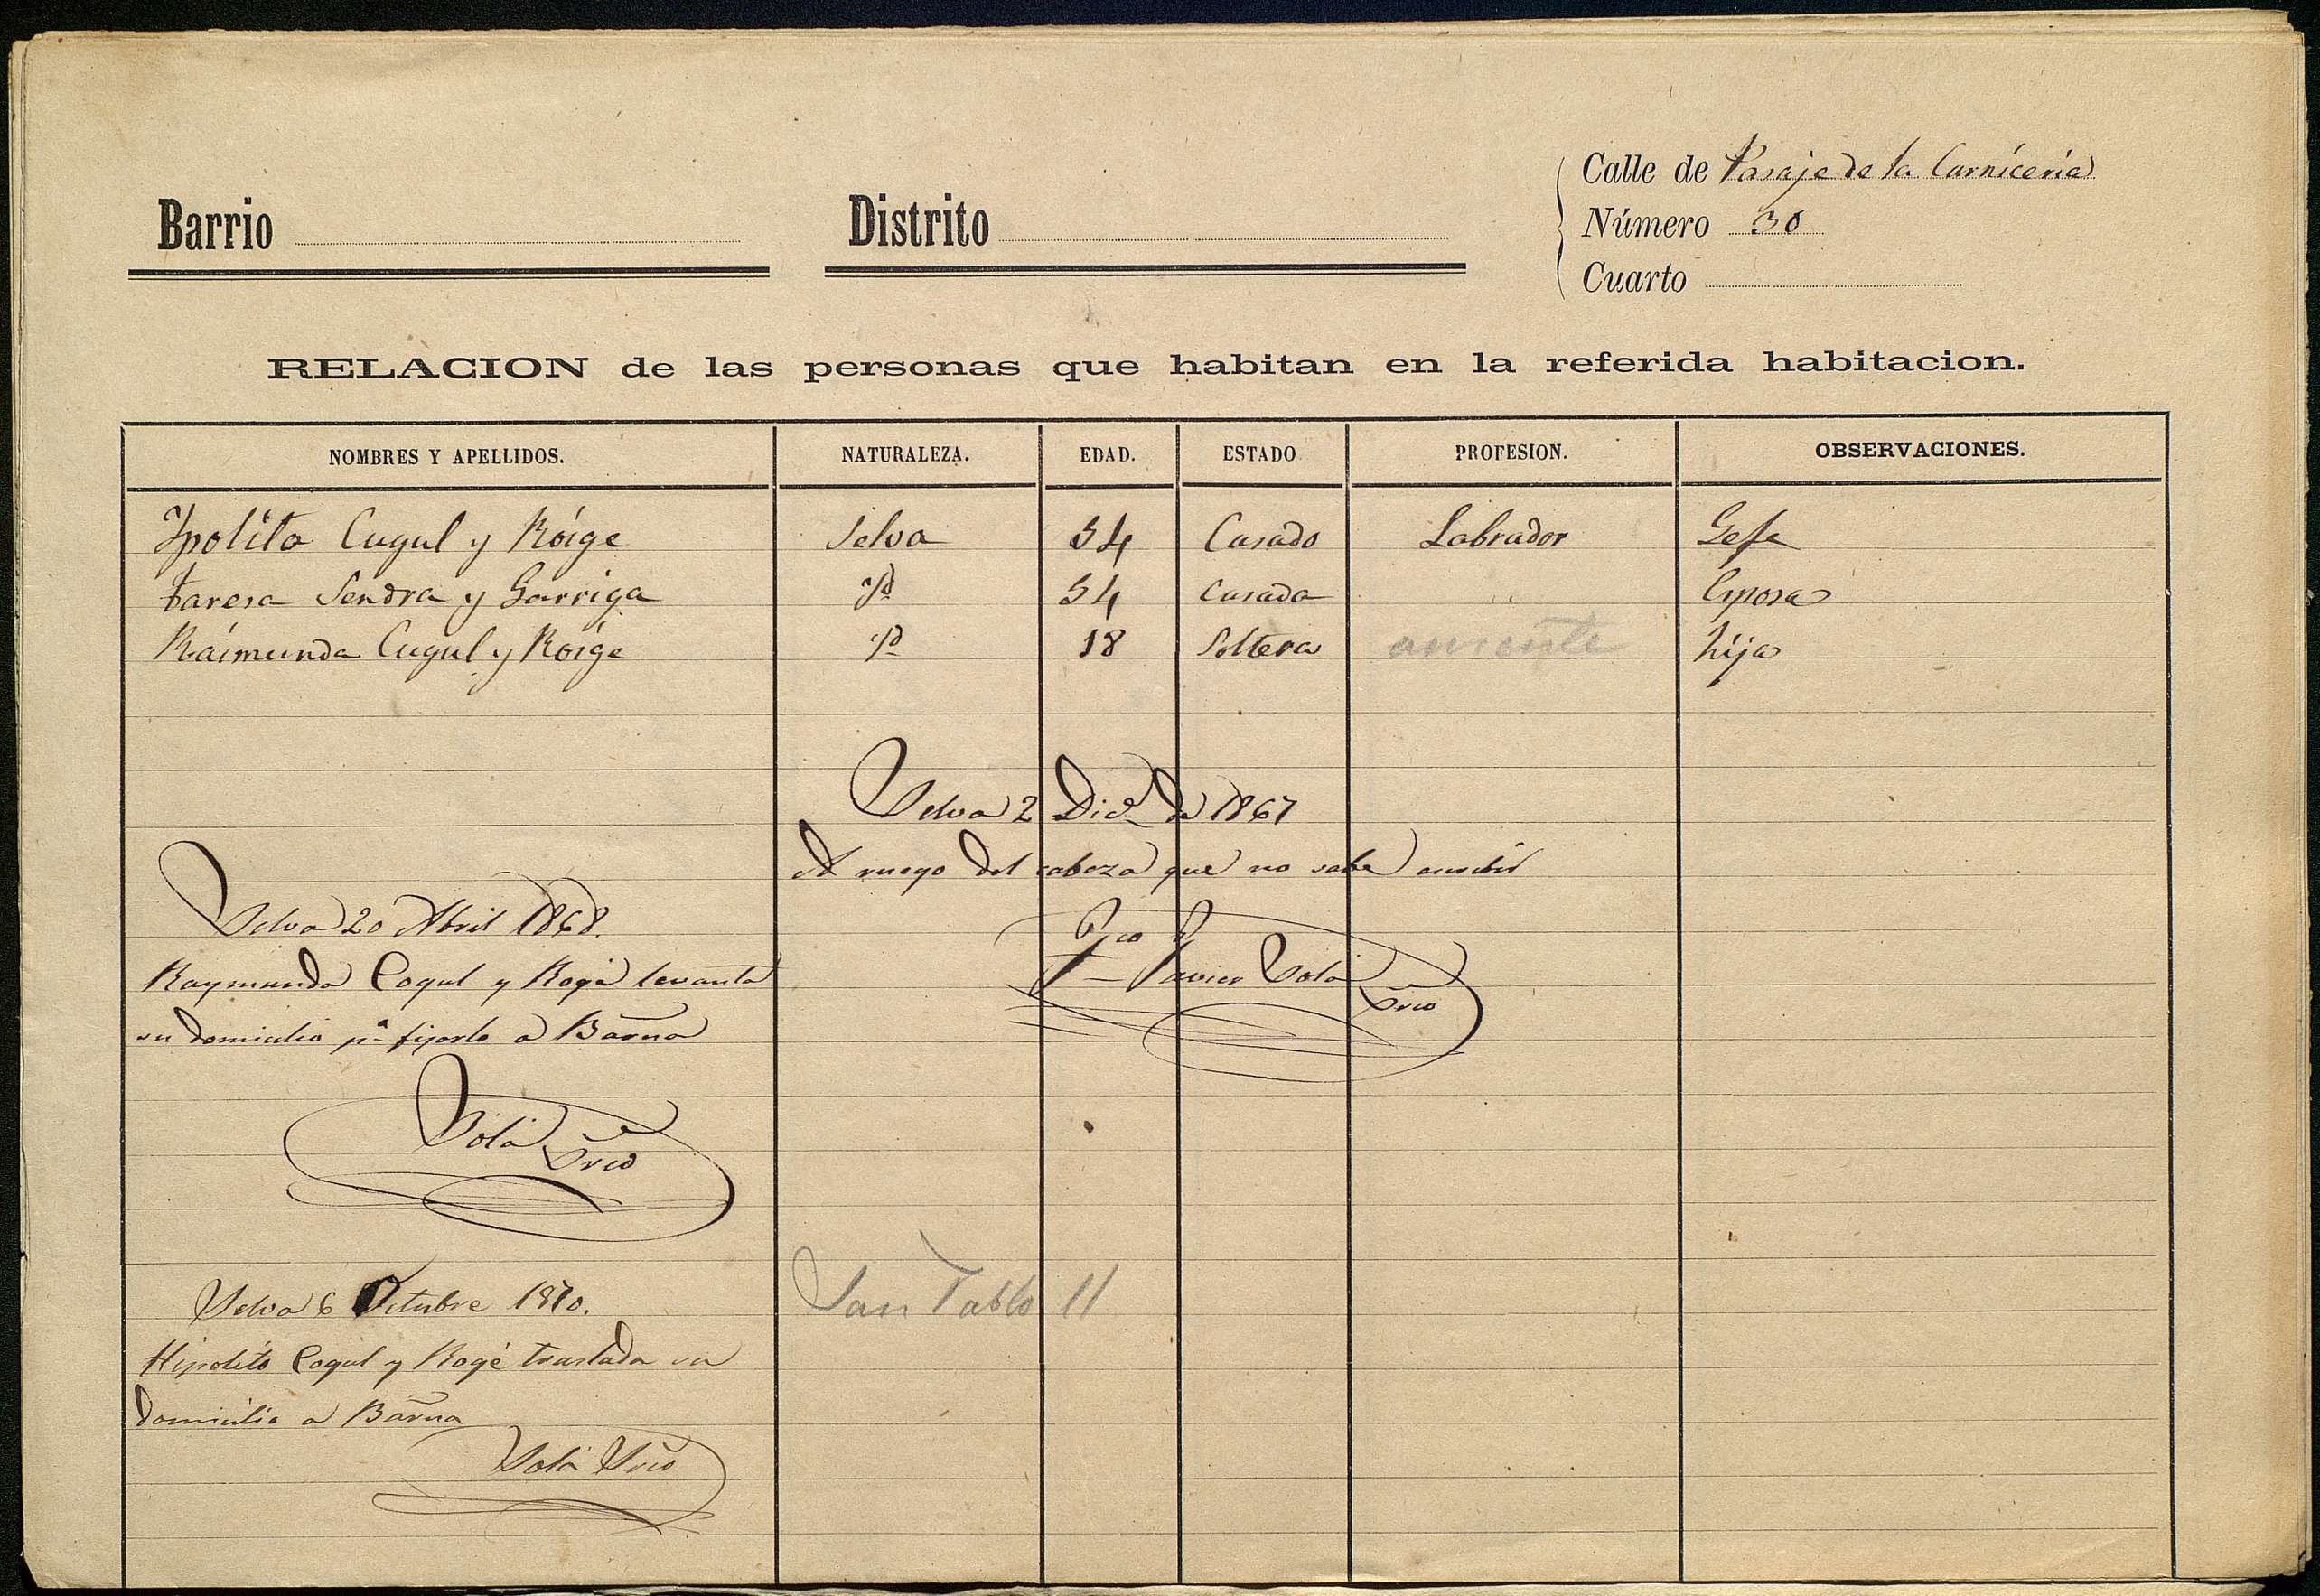 Calle de Pasaje de la Carnicería
Barrio Distrito Número 30
Cuarto
RELACION de las personas que habitan en la referida habitacion.
NOMBRES Y APELLIDOS. NATURALEZA. EDAD. ESTADO PROFESION. OBSERVACIONES.
Ypolito Cugul y Róige Selva 54 Casado Labrador Gefe
Taresa Sendra y Garriga Yd 54 Casada Esposa
Raimunda Cugul y Roige Yd 18 Soltera ausente hija
Selva 2 Dice de 1867
A ruego del cabeza que no sabe escribir
Fco Javier Solá
Srio
Selva 20 Abril 1868.
Raymunda Cogul y Rogé levanta
su domicilio pa fijarlo a Barna
Solá Srio
Selva 6 Octubre 1870.
San Pablo 11
Hipolito Cogul y Rogé traslada su
domicilio a Barna
Solá Srio